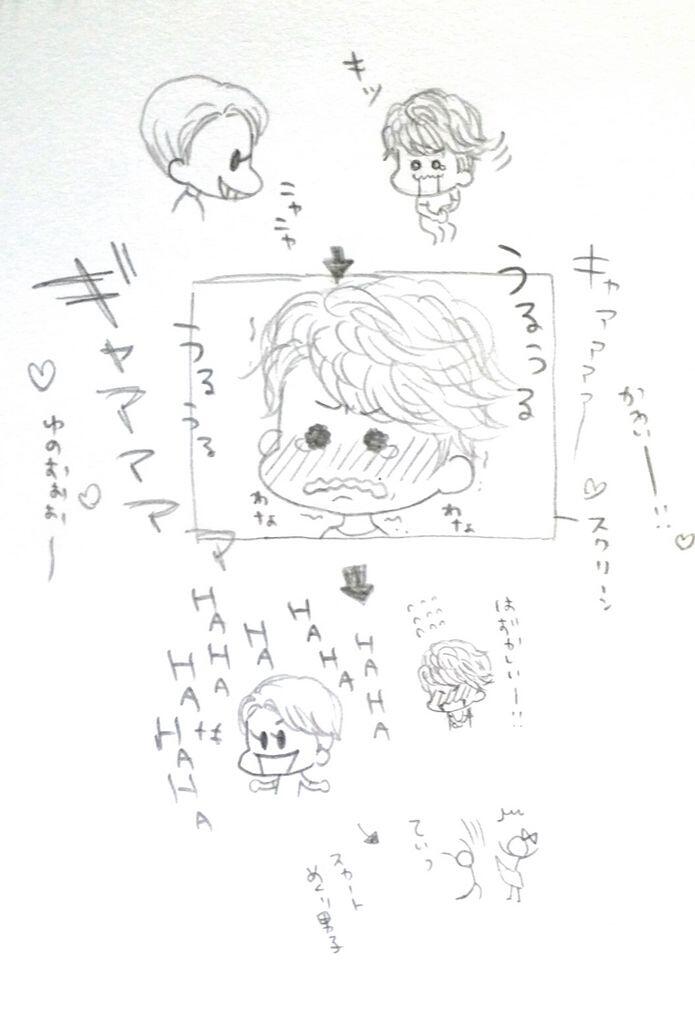 キッ
ニャ
ニャ
ギャアアアアア
♡ゆのむぉぉぉー♡
うるうる
うるうる
キャアアアアア♡
かわいー!!♡
スクリーン
わなわな
HAHA
HAHA
HA
HAHA
HAHA
HAHA
HAHA
はずかしいー!!
ていっ
スカート
めくり男子